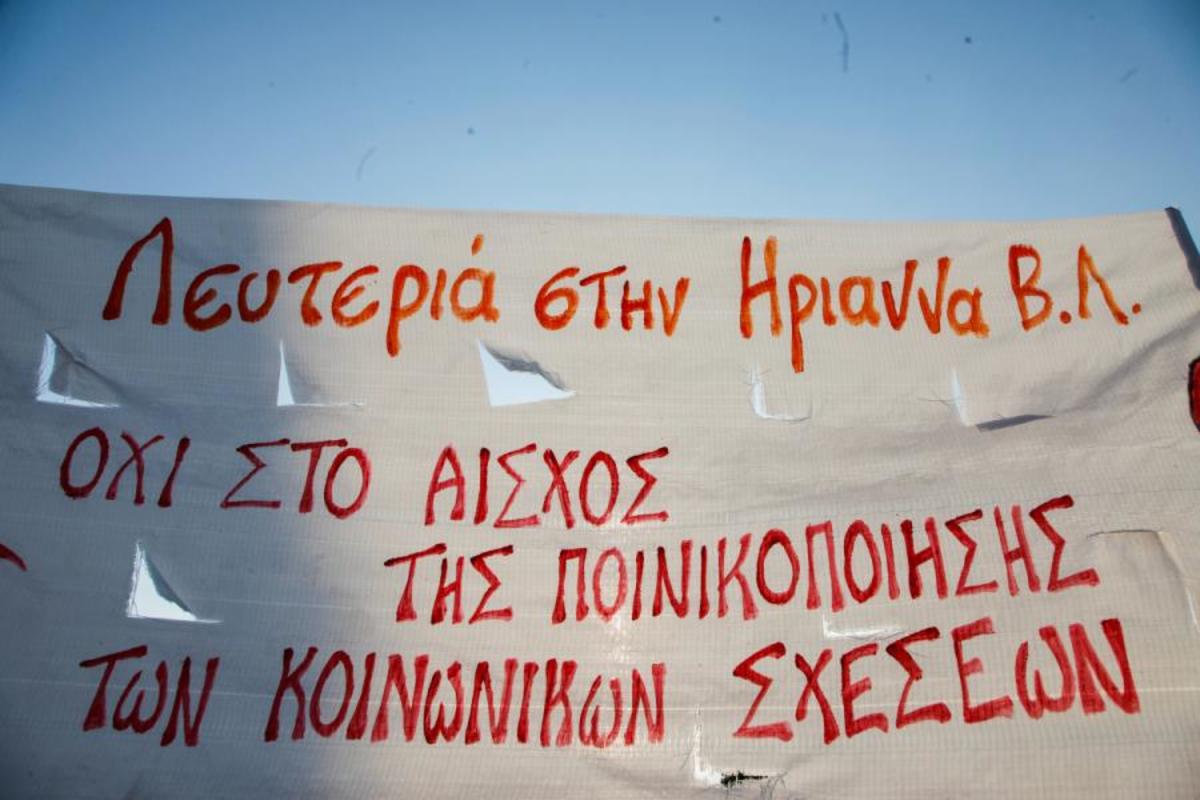 Λευτεριά στην Ηριαννα Β.Λ.
ΟΧΙ ΣΤΟ ΑΙΣΧΟΣ
ΤΗΣ ΠΟΙΝΙΚΟΠΟΙΗΣΗΣ
ΤΩΝ ΚΟΙΝΩΝΙΚΩΝ ΣΧΕΣΕΩΝ